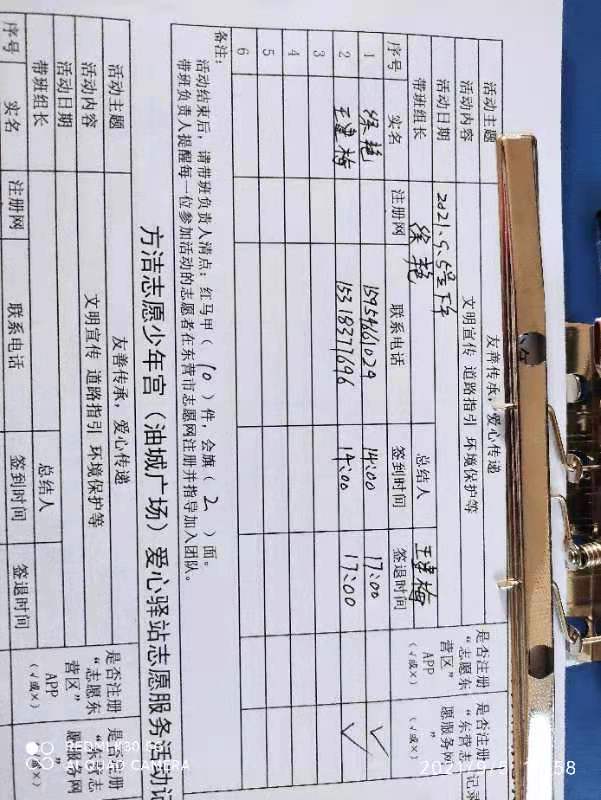 活动主题 友善传承,爱心传递
活动内容 文明宣传 道路指引 环境保护等
活动日期 2021.9.5号下午
带班组长 徐艳 总结人 王皇梅
序号 实名 注册网 联系电话 签到时间 签退时间 是否注册“志愿东营区”APP(√或×) 是否注册“东营志愿服务网”(√或×)
1 徐艳 14:00 17:00 √
2 王皇梅 15318377696 14:00 17:00 √
3
4
5
6
备注:
活动结束后,请带班负责人清点:红马甲(10)件,会旗(2)面。
带班负责人提醒每一位参加活动的志愿者在东营市志愿网注册并指导加入团队。
方洁志愿少年宫(油城广场)爱心驿站志愿服务活动记
活动主题 友善传承,爱心传递
活动内容 文明宣传 道路指引 环境保护等
活动日期
带班组长 总结人
序号 实名 注册网 联系电话 签到时间 签退时间 是否注册“志愿东营区”APP(√或×) 是否注册“东营志愿服务网”
REDMI K30 5G
AI QUAD CAMERA